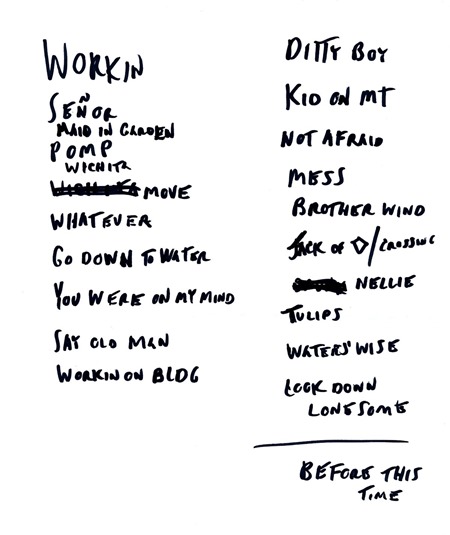 WORKIN
SEÑOR
MAID IN GARDEN
POMP
WICHITA
MOVE
WHATEVER
GO DOWN TO WATER
YOU WERE ON MY MIND
SAY OLD MAN
WORKIN ON BLDG
DITTY BOY
KID ON MT
NOT AFRAID
MESS
BROTHER WIND
JACK OF ◇/CROSSING
NELLIE
TULIPS
WATERS WISE
LOCK DOWN
LONESOME
BEFORE THIS
TIME